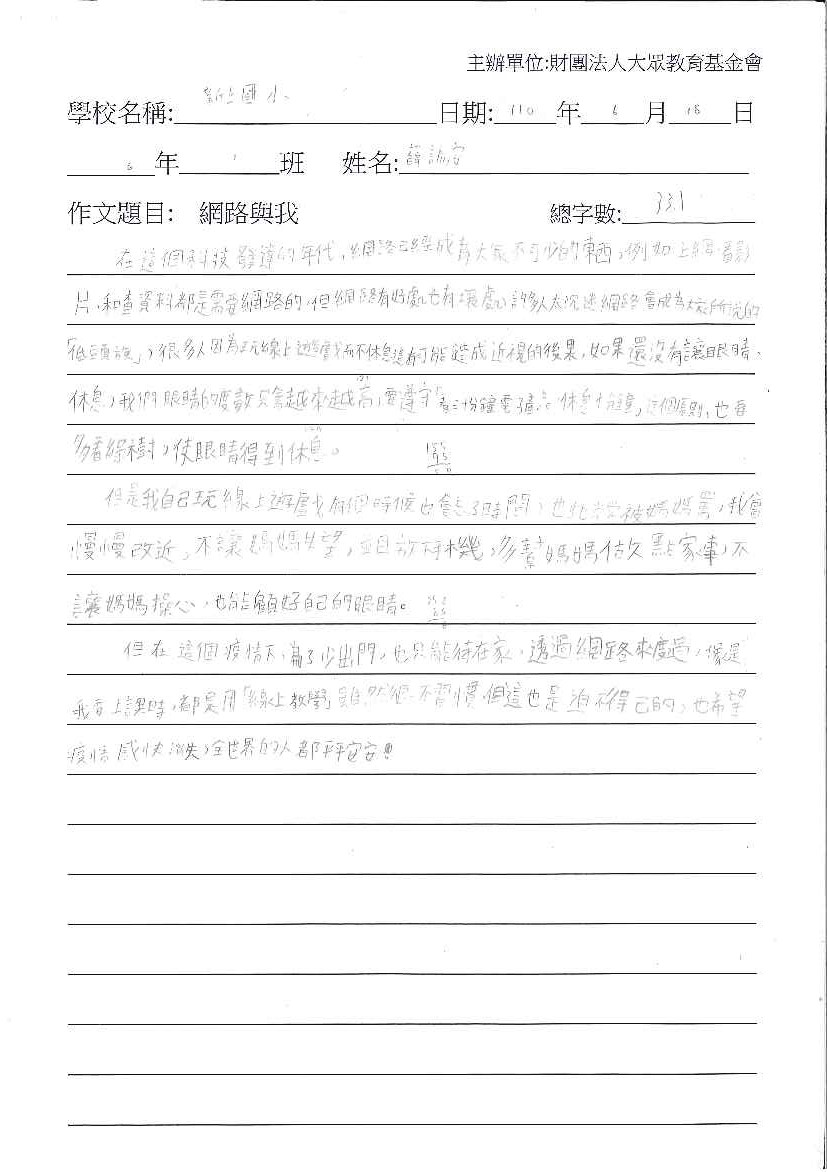 主辦單位:財團法人大眾教育基金會
學校名稱: 國小 日期: 110 年 6 月 18 日
6 年 1 班 姓名: 薛 安
作文題目: 網路與我 總字數: 331
在這個科技發達的年代,網路已經成為大家不可少的東西,例如上網看影
片,和查資料都是需要網路的,但網路有好處也有壞處,許多人太沉迷網路會成為大家所說的
「低頭族」,很多人因為玩線上遊戲而不休息這有可能造成近視的後果,如果還沒有讓眼睛
休息,我們眼睛的度數只會越來越高,要遵守「看三十分鐘電子產品休息十分鐘」這個原則,也要
多看綠樹,使眼睛得到休息。
但是我自己玩線上遊戲有個時候也會忘了時間,也 常被媽媽罵,我會
慢慢改近,不讓媽媽失望,並且放下手機,多幫媽媽做點家事,不
讓媽媽操心,也能顧好自己的眼睛。
但在這個疫情下,為了少出門,也只能待在家,透過網路來度過,像是
我要上課時,都是用「線上教學」雖然很不習慣,但這也是迫不得已的,也希望
疫情感快消失,全世界的人都平平安安!!